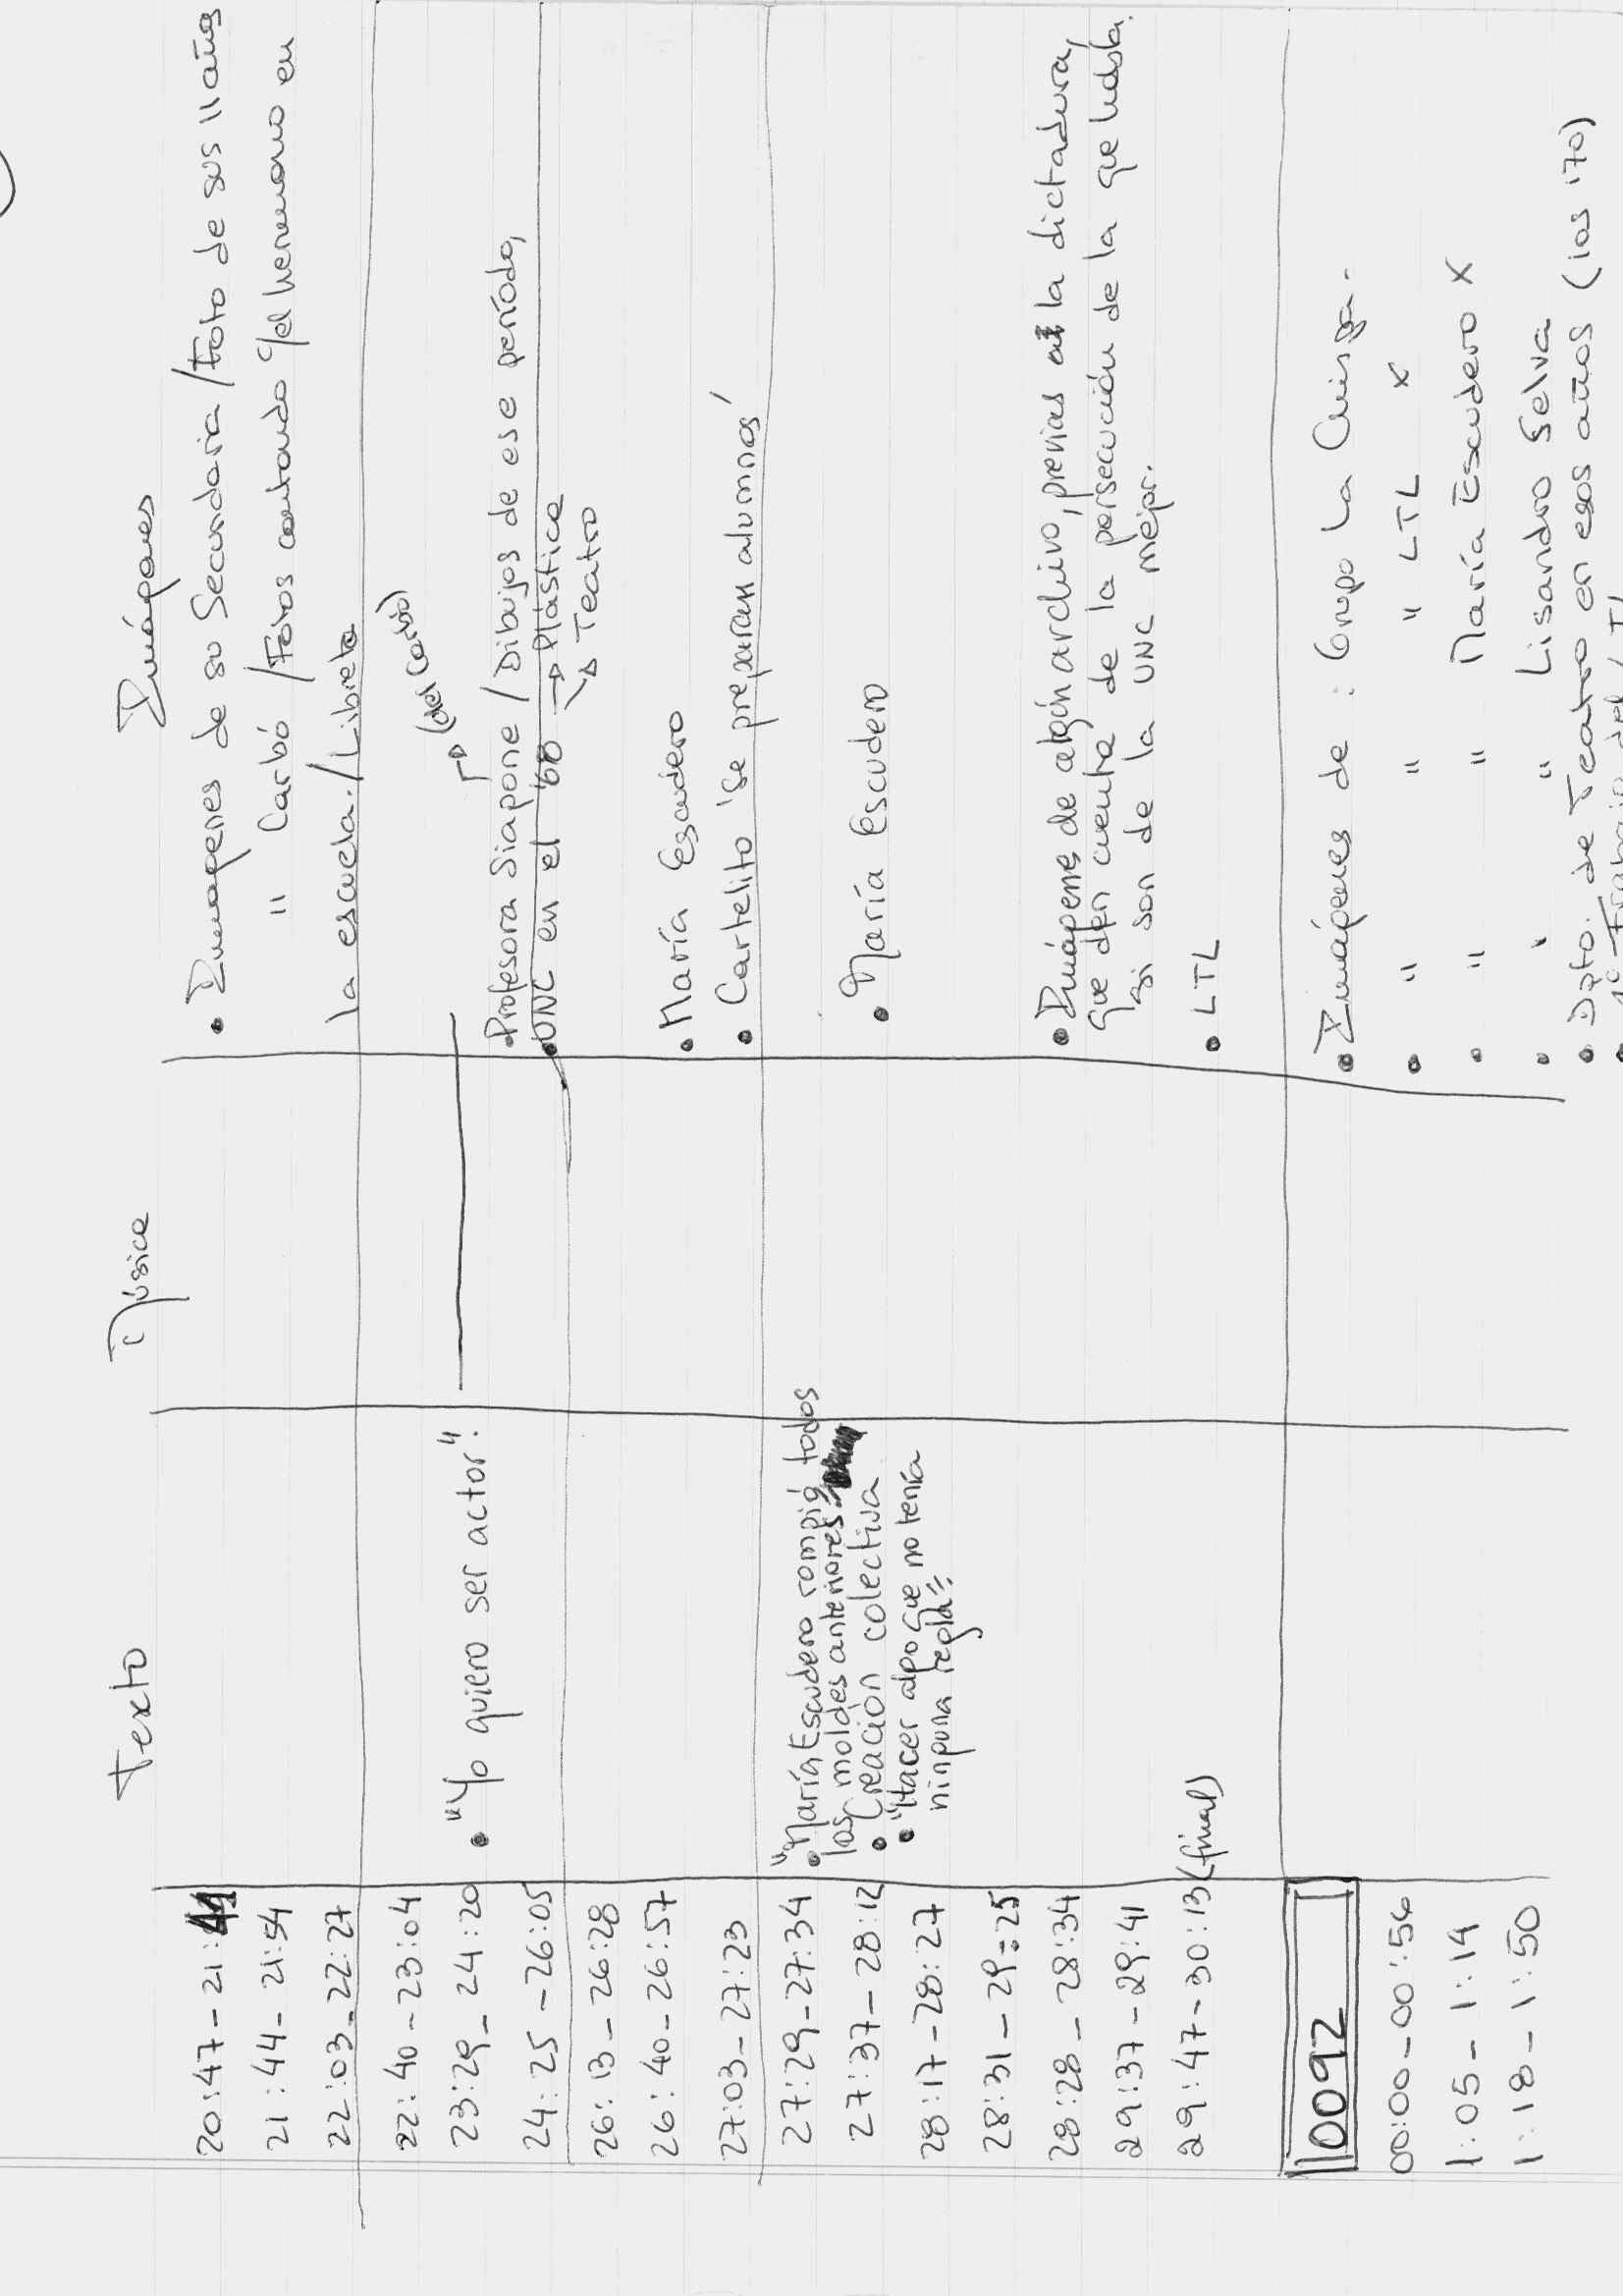 Texto
Música
Imágenes
20:47 - 21:41
21:44 - 21:54
22:03 - 22:27
• Imágenes de su Secundaria / Foto de sus 11 años
" Carbó / Fotos cantando c/el hermano en
la escuela. / Libreta
22:40 - 23:04
23:29 - 24:20
24:25 - 26:05
• "Yo quiero ser actor".
(del Carbó)
• Profesora Siapone / Dibujos de ese período,
• UNC en el '68 → Plástica
→ Teatro
26:13 - 26:28
26:40 - 26:57
27:03 - 27:23
• María Escudero
• Cartelito 'se preparan alumnos'
27:29 - 27:34
27:37 - 28:12
28:17 - 28:27
28:31 - 29:25
28:28 - 28:34
29:37 - 29:41
29:47 - 30:13 (final)
• "María Escudero rompió todos
los moldes anteriores"
• Creación colectiva
• "Hacer algo que no tenía
ninguna regla".
• María Escudero
• Imágenes de algún archivo, previas a la dictadura,
que den cuenta de la persecución de la que habla.
si son de la UNC mejor.
• LTL
0092
00:00 - 00:56
1:05 - 1:14
1:18 - 1:50
• Imágenes de : Grupo La Chispa.
• " " " LTL x
• " " María Escudero x
• " " Lisandro Selva
• Dpto. de Teatro en esos años (los '70)